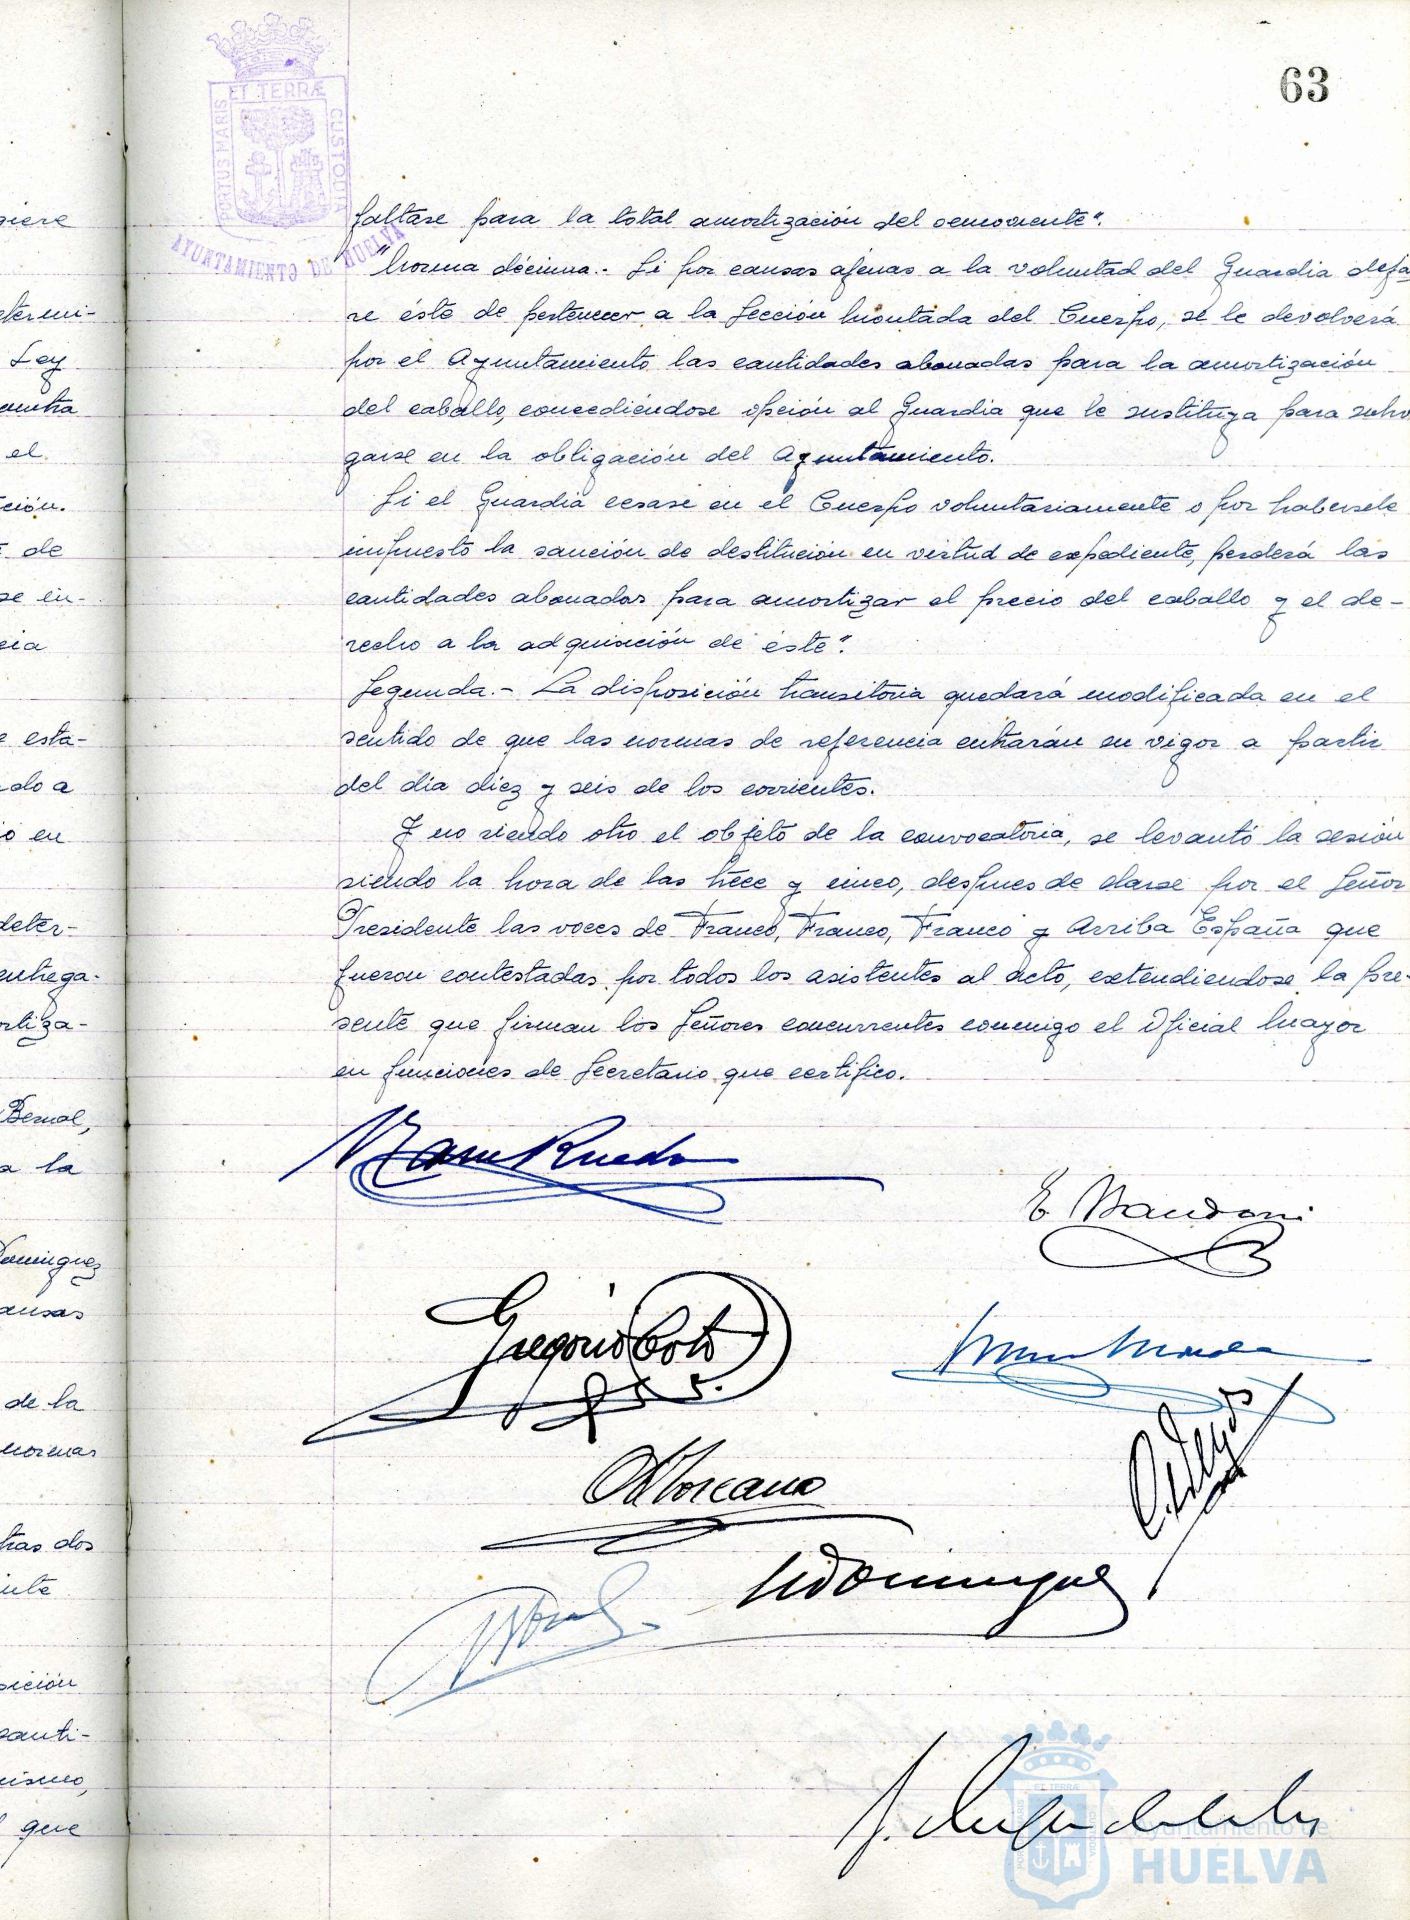 63
ET TERRÆ
PORTUS MARIS
CUSTODIA
AYUNTAMIENTO DE HUELVA
giere
termi-
Ley
el
ción.
de
se en-
cia
e esta-
ndo a
io en
deter-
entrega-
ortiza-
Bernal,
a la
Dominguez
ausas
de la
normas
tras dos
inte
sición
canti-
mismo,
que
faltase para la total amortización del semoviente".
"Norma décima.- Si por causas ajenas a la voluntad del Guardia deja-
re éste de pertenecer a la Sección Montada del Cuerpo, se le devolverá
por el Ayuntamiento las cantidades abonadas para la amortización
del caballo, concediéndose opción al Guardia que le sustituya para subro
garse en la obligación del Ayuntamiento.
Si el Guardia cesase en el Cuerpo voluntariamente o por habersele
impuesto la sanción de destitución en virtud de expediente, perderá las
cantidades abonadas para amortizar el precio del caballo y el de-
recho a la adquisición de éste".
Segunda.- La disposición transitoria quedará modificada en el
sentido de que las normas de referencia entrarán en vigor a partir
del día diez y seis de los corrientes.
Y no siendo otro el objeto de la convocatoria, se levantó la sesión
siendo la hora de las trece y cinco, despues de darse por el Señor
Presidente las voces de Franco, Franco, Franco y Arriba España que
fueron contestadas por todos los asistentes al acto, extendiendose la pre-
sente que firman los Señores concurrentes conmigo el Oficial Mayor
en funciones de Secretario que certifico.
Rueda
E.
Gregorio Soto
Dominguez
ET TERRÆ
Ayuntamiento de
HUELVA